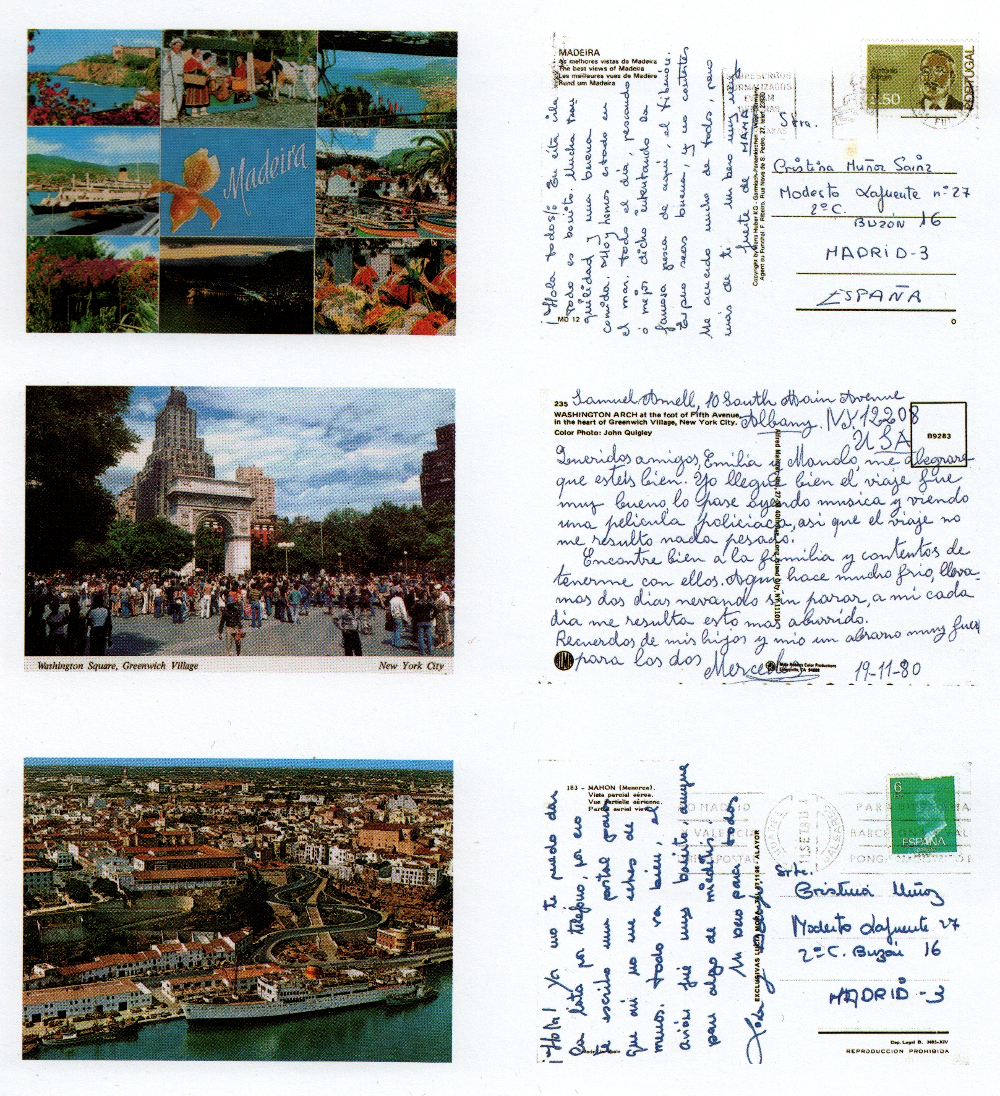 Madeira
MADEIRA
As melhores vistas da Madeira
The best views of Madeira
Les meilleures vues de Madère
Rund um Madeira
PORTUGAL
3.50
¡Hola todos!: En esta isla
todo es bonito. Mucha tran
quilidad y una buena
comida. Hoy hemos estado en
el mar todo el día, pescando
o mejor dicho intentando la
famosa pesca de aquí, el
Espero seas buena, y no contestes
Me acuerdo mucho de todos, pero
más de ti. Un beso muy muy
fuerte de MAMÁ
MD 12
Stra.
Cristina Muñoz Sainz
Modesto Lafuente nº 27
2º C.
BUZÓN 16
MADRID-3
ESPAÑA
Washington Square, Greenwich Village
New York City
235 Samuel Amell, 10 South Main Avenue
WASHINGTON ARCH at the foot of Fifth Avenue,
in the heart of Greenwich Village, New York City.
Color Photo: John Quigley
Albany. N.Y. 12208
USA
B9283
Queridos amigos, Emilia y Manolo, me alegrare
que esteis bien. Yo llegue bien el viaje fue
muy bueno, lo pase oyendo musica y viendo
una pelicula policiaca, asi que el viaje no
me resulto nada pesado.
Encontre bien a la familia y contentos de
tenerme con ellos. Aqui hace mucho frio, lleva-
mos dos dias nevando sin parar, a mi cada
dia me resulta esto mas aburrido.
Recuerdos de mis hijos y mio un abrazo muy fuer
para los dos
Mercedes
19-11-80
183 - MAHON (Menorca).
Vista parcial aérea.
Vue partielle aérienne.
Partial aerial view.
6
ESPAÑA
¡Hola! Ya no te puedo dar
la lata por teléfono, por eso
te escribo una postal para
que así no me eches de
menos. Todo va bien, el
avión fue muy barato, aunque
pasé algo de miedo.
Un beso para todos,
EXCLUSIVAS
ALAYOR
Srta.
Cristina Muñoz
Modesto Lafuente 27
2º C. Buzón 16
MADRID-3
Dep. Legal B. 3483-XIV
REPRODUCCION PROHIBIDA